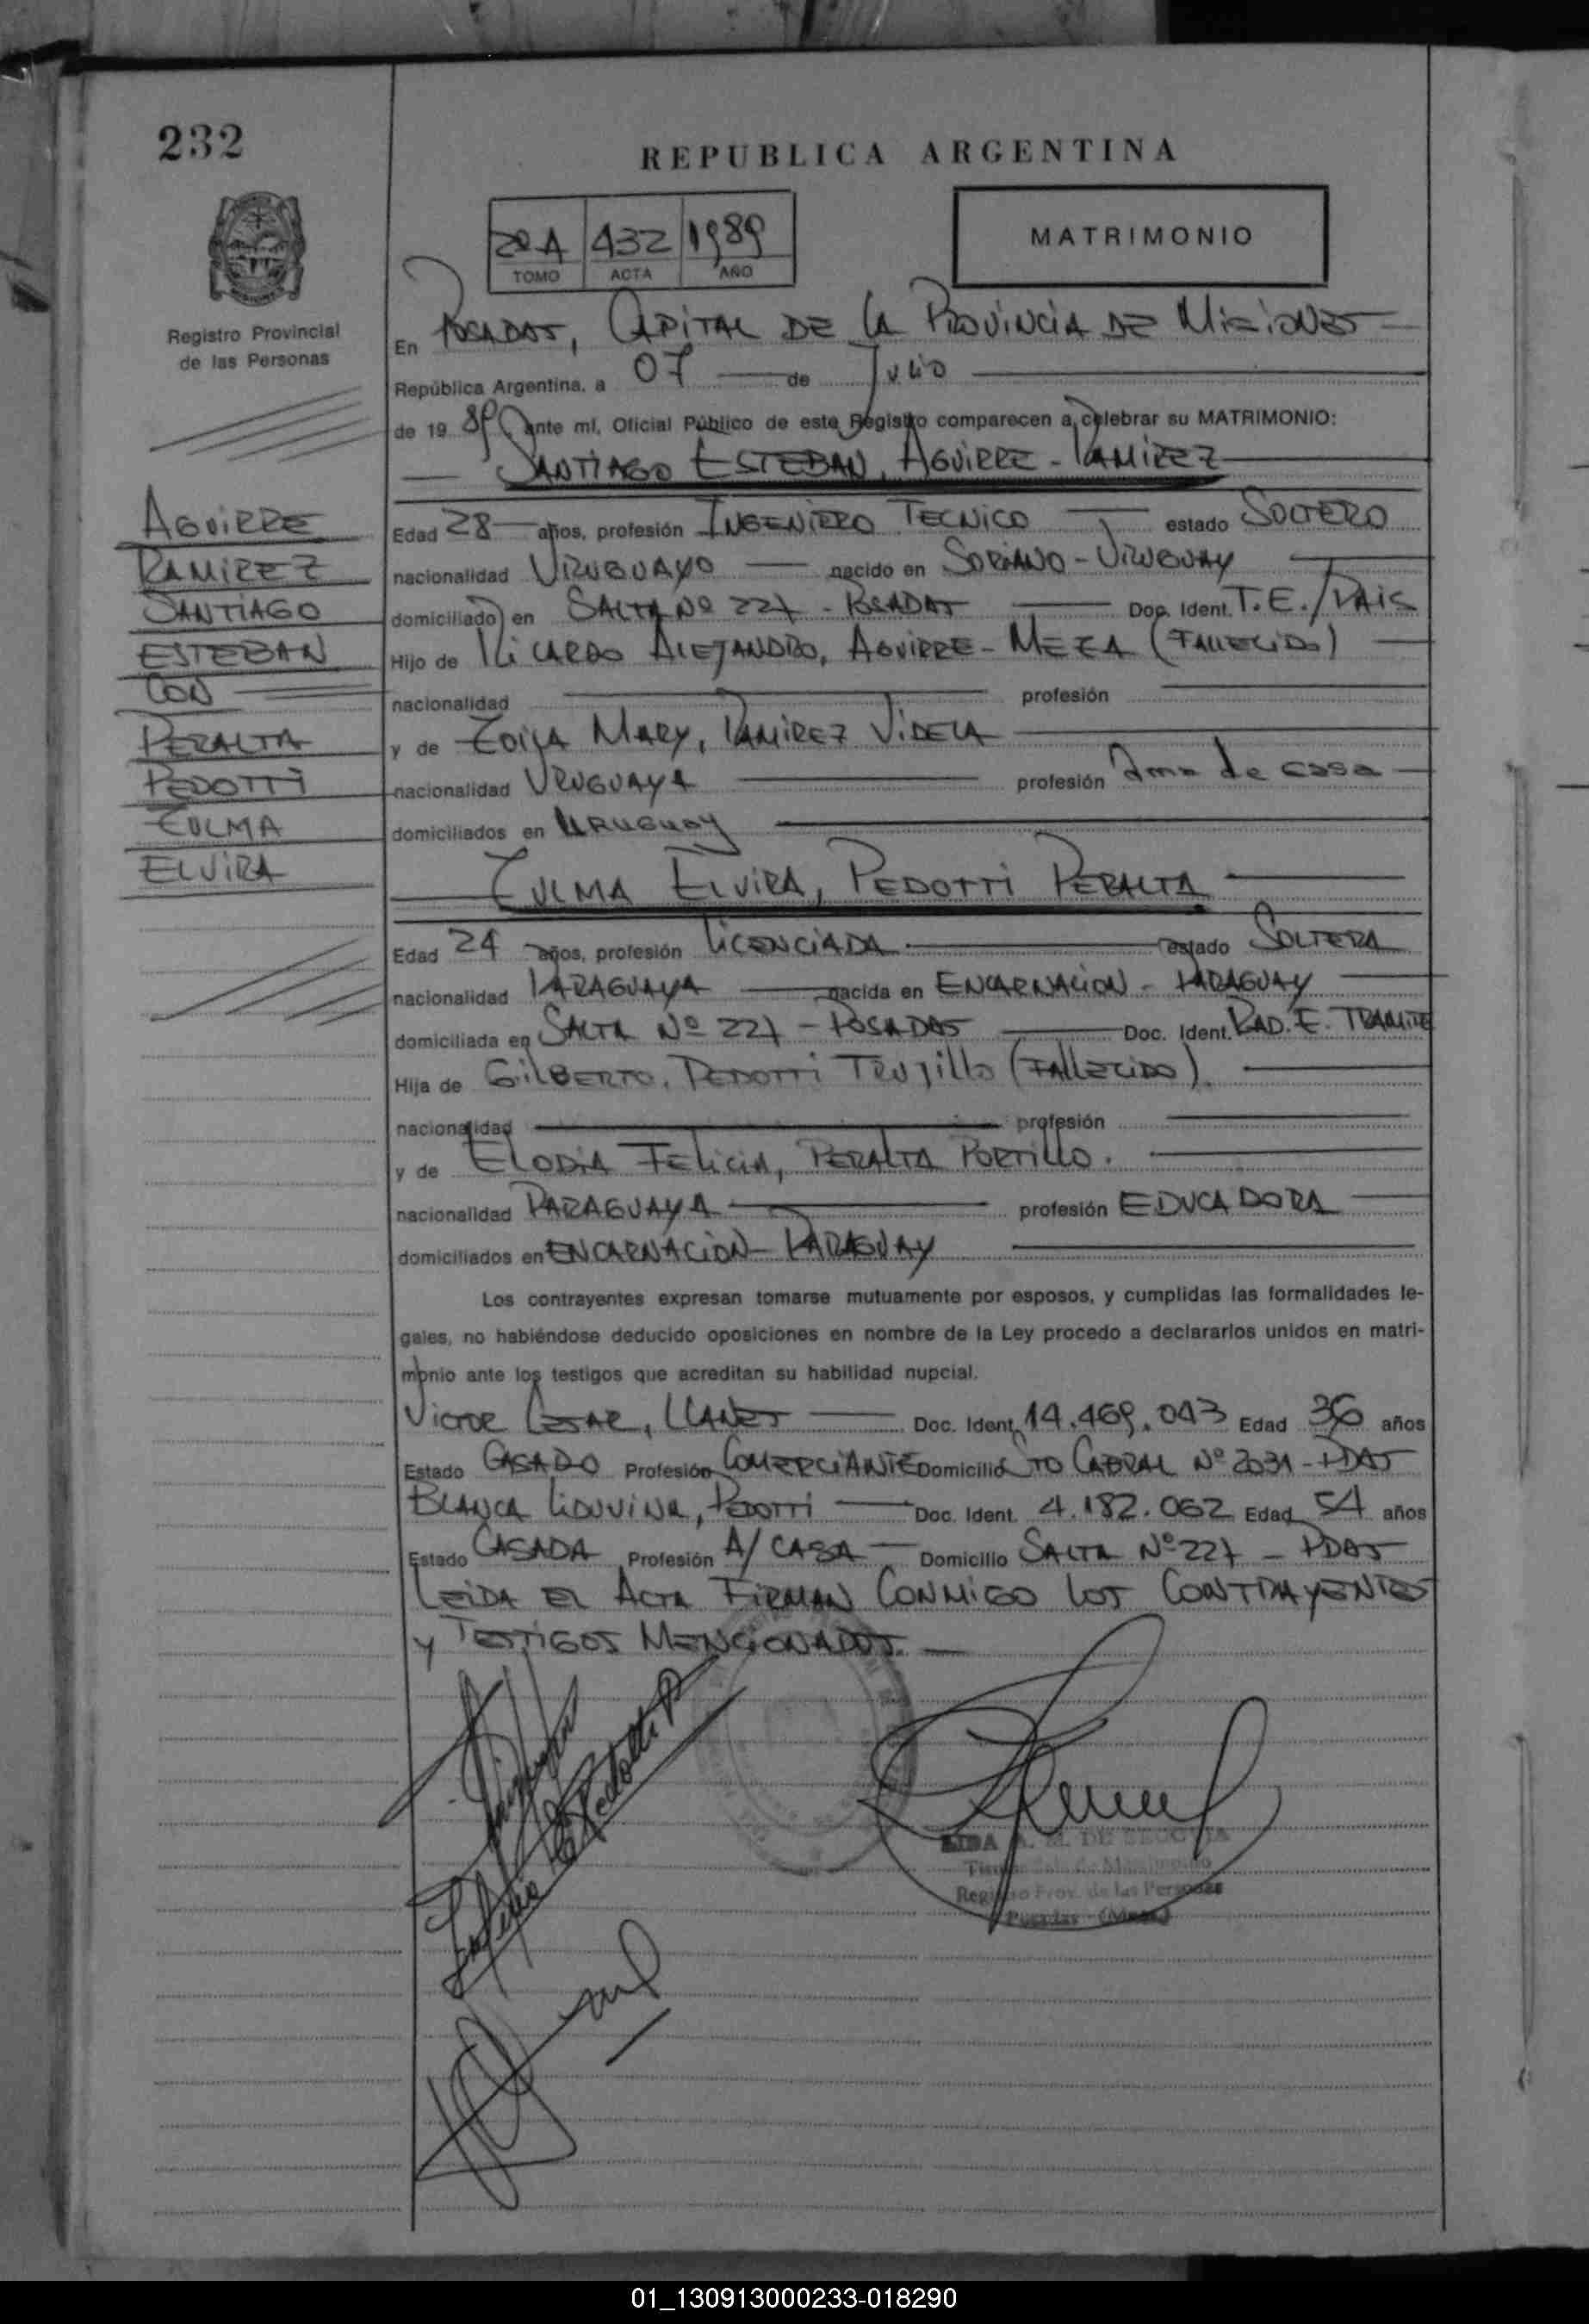 232
REPUBLICA ARGENTINA
2º A 432 1989
TOMO ACTA AÑO
MATRIMONIO
Registro Provincial
de las Personas
En POSADAS, CAPITAL DE LA PROVINCIA DE MISIONES
República Argentina, a 07 de Julio
de 19 89 ante mí, Oficial Público de este Registro comparecen a celebrar su MATRIMONIO:
SANTIAGO ESTEBAN, AGUIRRE - RAMIREZ
AGUIRRE
RAMIREZ
SANTIAGO
ESTEBAN
CON
PERALTA
PEDOTTI
ZULMA
ELVIRA
Edad 28 años, profesión INGENIERO TECNICO estado SOLTERO
nacionalidad URUGUAYO nacido en SORIANO - URUGUAY
domiciliado en SALTA Nº 227 - POSADAS Doc. Ident. T.E./PAIS
Hijo de RICARDO ALEJANDRO, AGUIRRE - MEZA (FALLECIDO)
nacionalidad profesión
y de ZOILA MARY, RAMIREZ VIDELA
nacionalidad URUGUAYA profesión Ama de casa
domiciliados en URUGUAY
ZULMA ELVIRA, PEDOTTI PERALTA
Edad 24 años, profesión LICENCIADA estado SOLTERA
nacionalidad PARAGUAYA nacida en ENCARNACION - PARAGUAY
domiciliada en SALTA Nº 227 - POSADAS Doc. Ident. RAD. E. TRAMITE
Hija de GILBERTO, PEDOTTI TRUJILLO (FALLECIDO).
nacionalidad profesión
y de ELODIA FELICIA, PERALTA PORTILLO.
nacionalidad PARAGUAYA profesión EDUCADORA
domiciliados en ENCARNACION - PARAGUAY
Los contrayentes expresan tomarse mutuamente por esposos, y cumplidas las formalidades le-
gales, no habiéndose deducido oposiciones en nombre de la Ley procedo a declararlos unidos en matri-
monio ante los testigos que acreditan su habilidad nupcial.
VICTOR CESAR, LLANES Doc. Ident. 14.469.043 Edad 36 años
Estado CASADO Profesión COMERCIANTE Domicilio STO CABRAL Nº 2031 - PDAS
BLANCA LIDUVINA, PEDOTTI Doc. Ident. 4.182.062 Edad 54 años
Estado CASADA Profesión A/ CASA Domicilio SALTA Nº 227 - PDAS
LEIDA EL ACTA FIRMAN CONMIGO LOS CONTRAYENTES
Y TESTIGOS MENCIONADOS.
Pedotti P
A. M. DE SEGOVIA
Registro Prov. de las Personas
Posadas
01_130913000233-018290